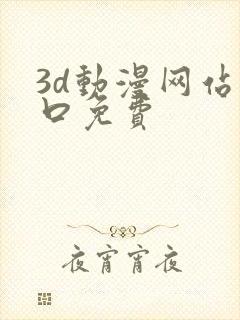 3d動漫网佔
口免費
夜宵宵夜